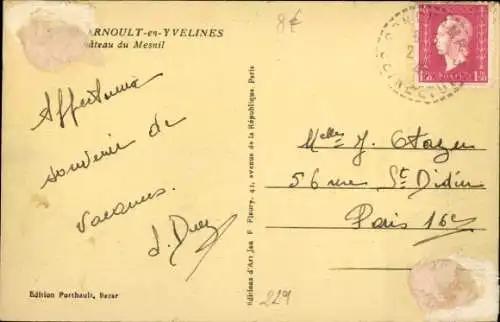 ARNOULT-en-YVELINES
âteau du Mesnil
8€
Affectueux
souvenir de
vacances.
Editions d'Art Jan F. Fleury, 41, avenue de la République, Paris
Melles J.
56 rue St Didier
Paris 16e
Edition Porthault, Bazar
229